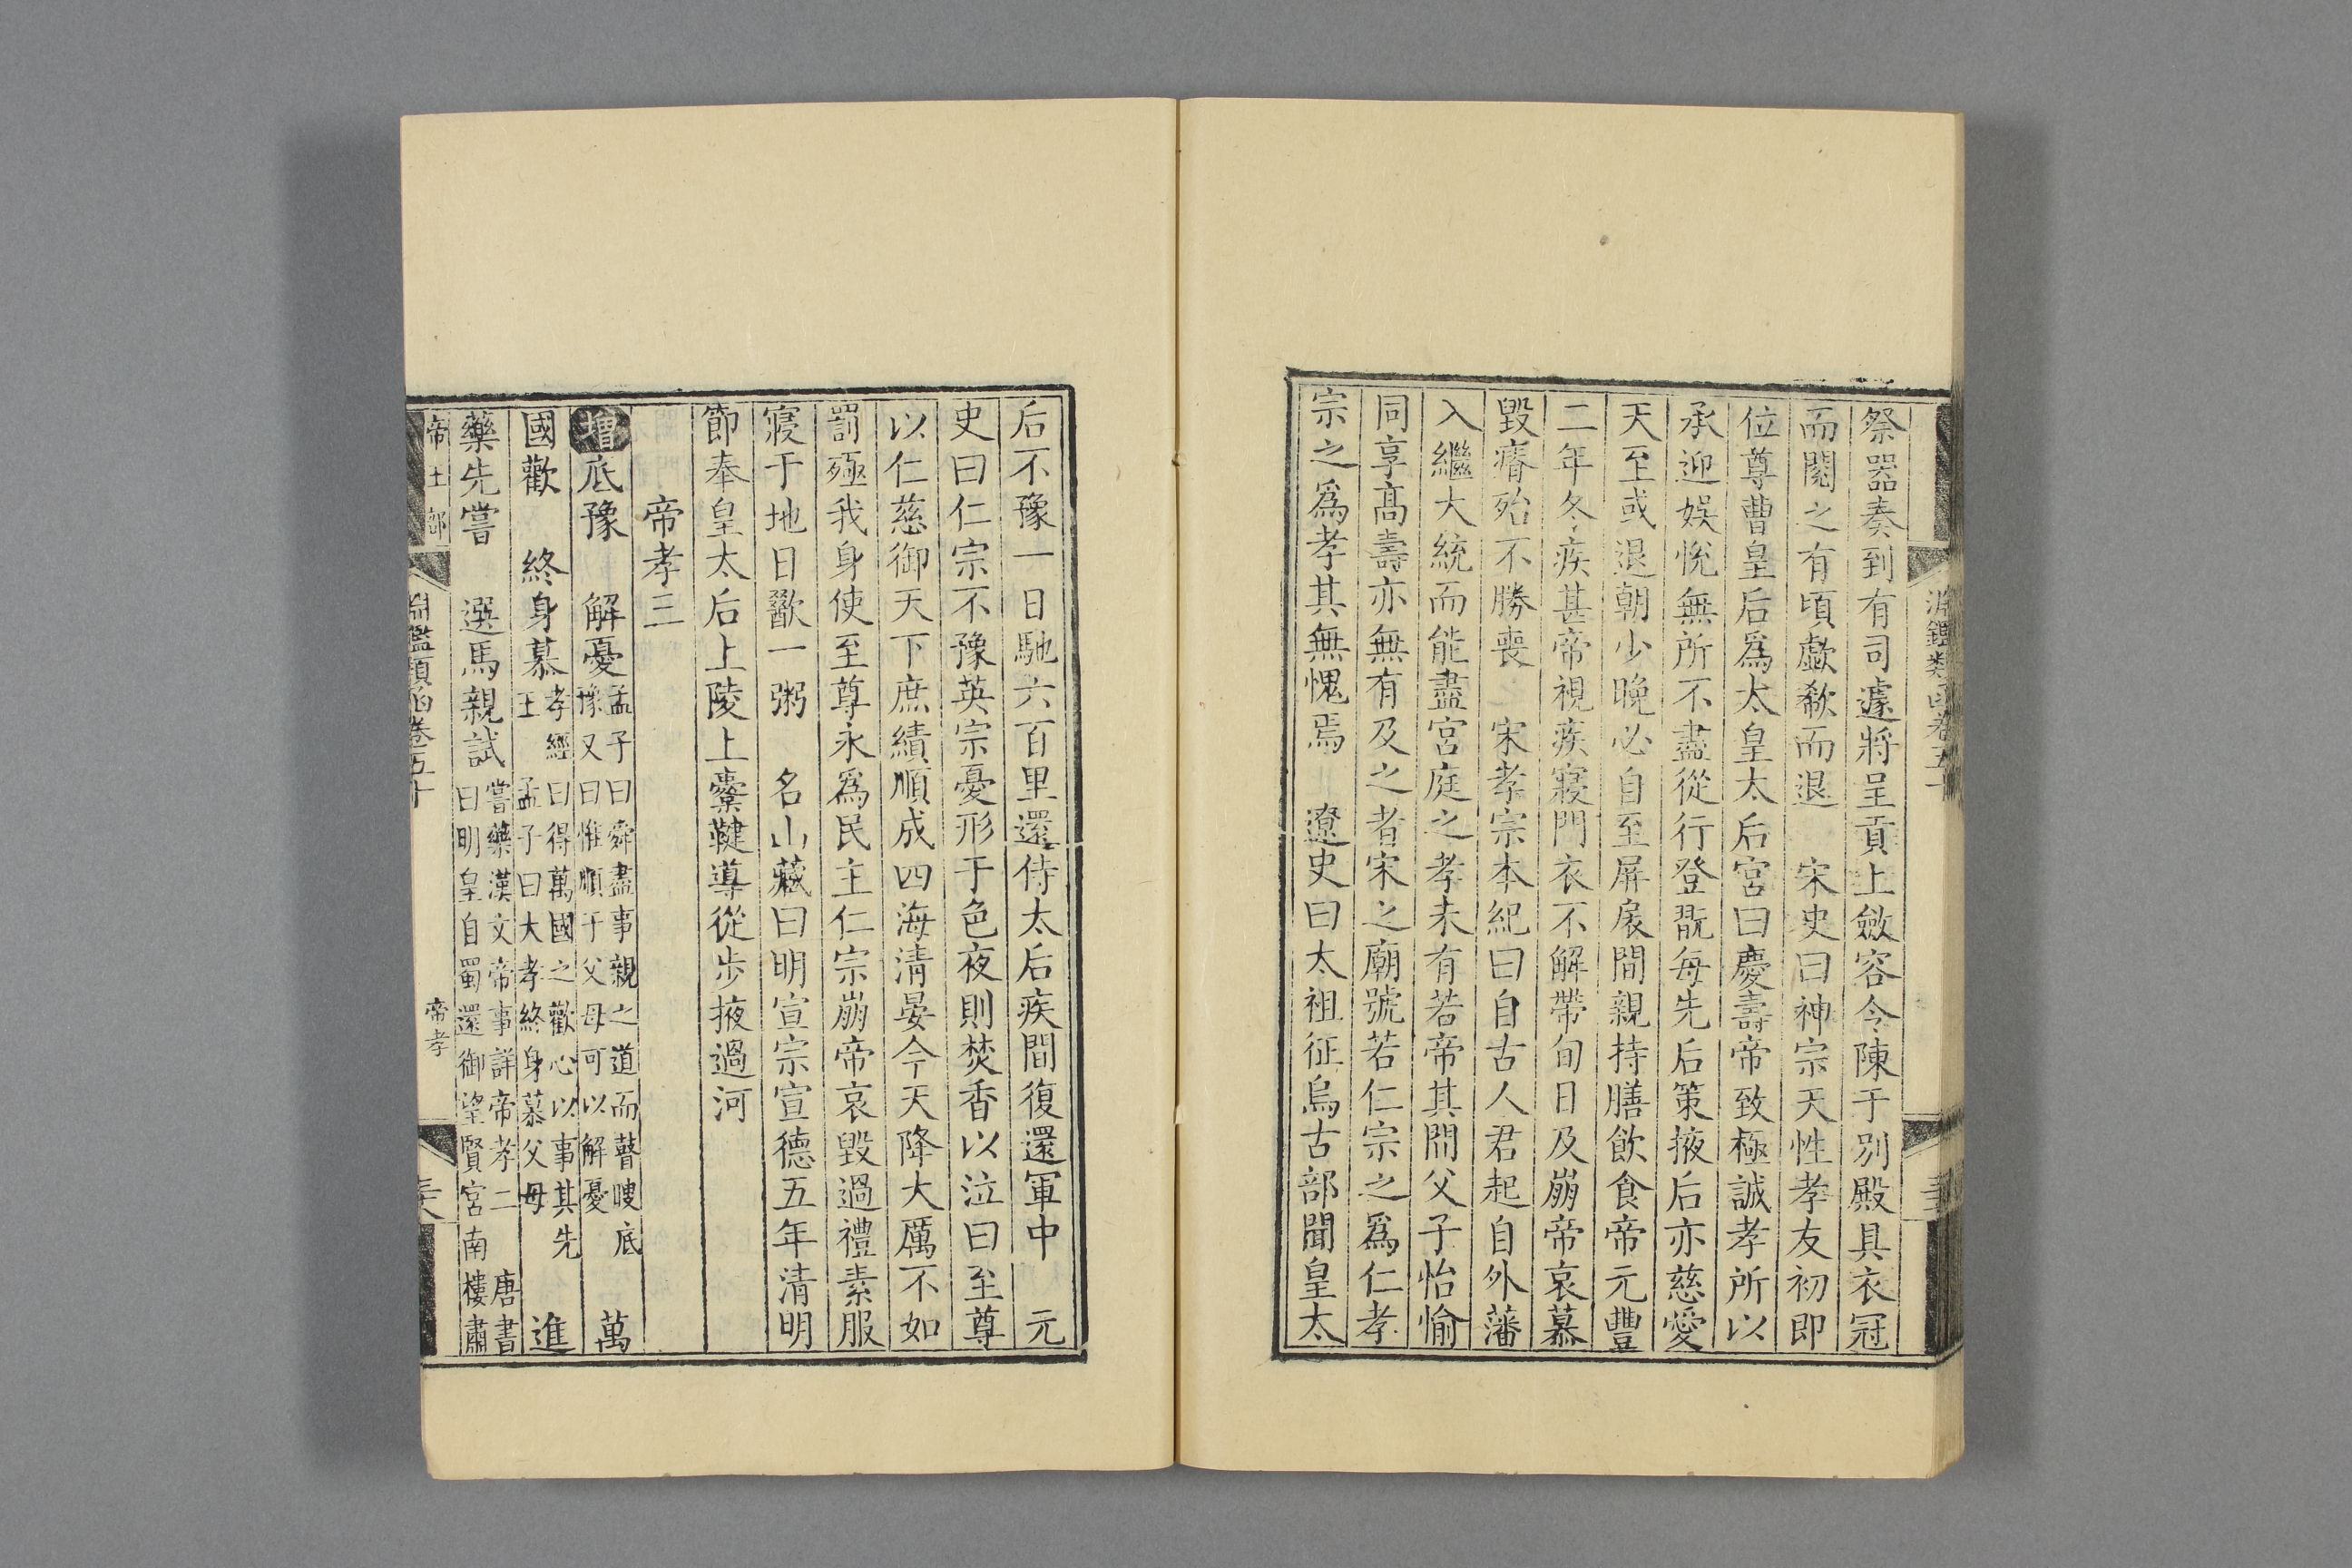 祭器奏到有司遽將呈貢上斂容令陳于別殿具衣冠
而閱之有頃歔欷而退　宋史曰神宗天性孝友初即
位尊曹皇后爲太皇太后宮曰慶壽帝致極誠孝所以
承迎娛悅無所不盡從行登翫每先后策掖后亦慈愛
天至或退朝少晚必自至屏扆間親持膳飲食帝元豐
二年冬疾甚帝視疾寢門衣不解帶旬日及崩帝哀慕
毀瘠殆不勝喪　宋孝宗本紀曰自古人君起自外藩
入繼大統而能盡宮庭之孝未有若帝其間父子怡愉
同享高壽亦無有及之者宋之廟號若仁宗之爲仁孝
宗之爲孝其無愧焉　遼史曰太祖征烏古部聞皇太
后不豫一日馳六百里還侍太后疾間復還軍中　元
史曰仁宗不豫英宗憂形于色夜則焚香以泣曰至尊
以仁慈御天下庶績順成四海清晏今天降大厲不如
罰殛我身使至尊永爲民主仁宗崩帝哀毀過禮素服
寢于地日歠一粥　名山藏曰明宣宗宣德五年清明
節奉皇太后上陵上櫜鞬導從步掖過河
帝孝三
增底豫　解憂孟子曰舜盡事親之道而瞽瞍底豫又曰惟順于父母可以解憂　萬
國歡　終身慕孝經曰得萬國之歡心以事其先王　孟子曰大孝終身慕父母　進
藥先嘗　選馬親試嘗藥漢文帝事詳帝孝二　唐書曰明皇自蜀還御望賢宮南樓肅
帝王部　淵鑑類函卷五十　帝孝